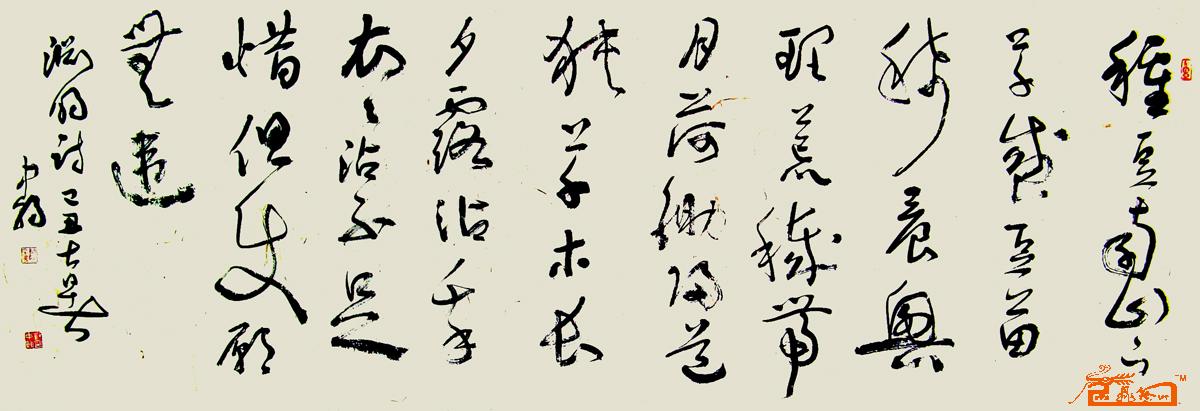 種豆南山下
草盛豆苗
稀晨興
理荒穢帶
月荷鋤歸道
狹草木長
夕露沾我
衣々沾不足
惜但使願
無違
淵明詩己丑大暑